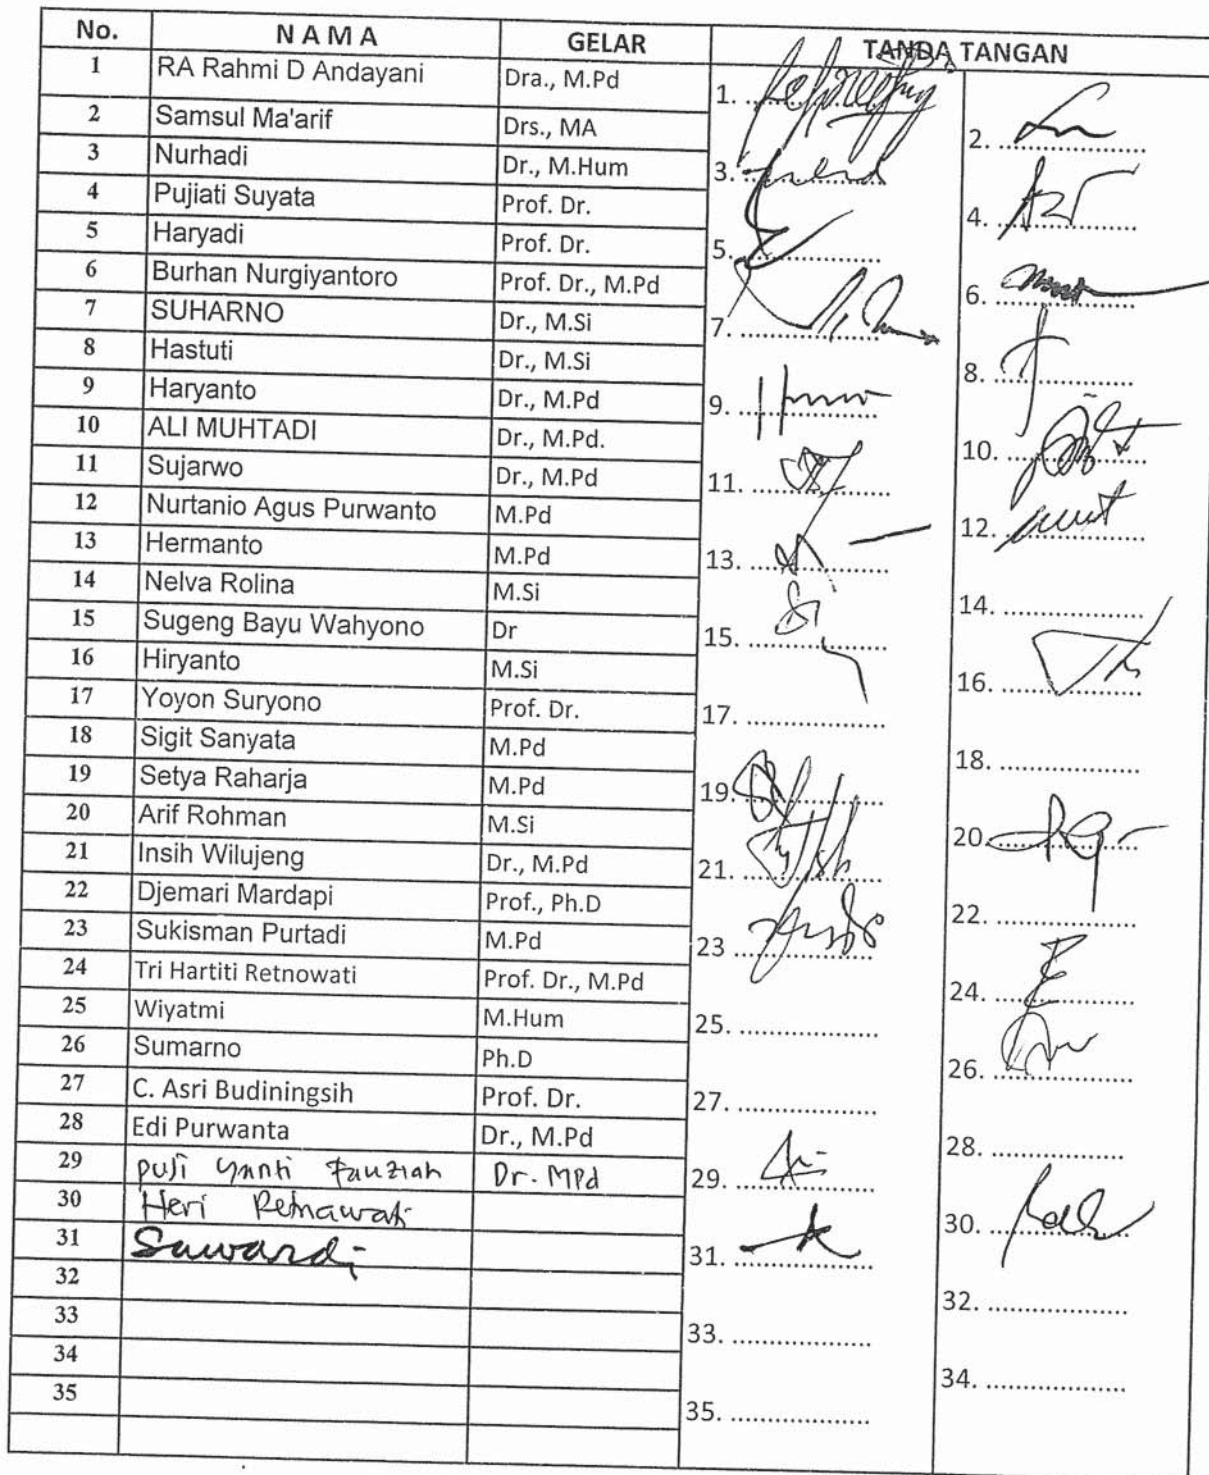 No. N A M A GELAR TANDA TANGAN
1 RA Rahmi D Andayani Dra., M.Pd 1.
2 Samsul Ma'arif Drs., MA 2. ........................
3 Nurhadi Dr., M.Hum 3. ........................
4 Pujiati Suyata Prof. Dr. 4. ........................
5 Haryadi Prof. Dr. 5. ........................
6 Burhan Nurgiyantoro Prof. Dr., M.Pd 6. ........................
7 SUHARNO Dr., M.Si 7. ........................
8 Hastuti Dr., M.Si 8. ........................
9 Haryanto Dr., M.Pd 9. ........................
10 ALI MUHTADI Dr., M.Pd. 10. ........................
11 Sujarwo Dr., M.Pd 11. ........................
12 Nurtanio Agus Purwanto M.Pd 12. ........................
13 Hermanto M.Pd 13. ........................
14 Nelva Rolina M.Si 14. ........................
15 Sugeng Bayu Wahyono Dr 15. ........................
16 Hiryanto M.Si 16. ........................
17 Yoyon Suryono Prof. Dr. 17. ........................
18 Sigit Sanyata M.Pd 18. ........................
19 Setya Raharja M.Pd 19. ........................
20 Arif Rohman M.Si 20. ........................
21 Insih Wilujeng Dr., M.Pd 21. ........................
22 Djemari Mardapi Prof., Ph.D 22. ........................
23 Sukisman Purtadi M.Pd 23 ........................
24 Tri Hartiti Retnowati Prof. Dr., M.Pd 24. ........................
25 Wiyatmi M.Hum 25. ........................
26 Sumarno Ph.D 26. ........................
27 C. Asri Budiningsih Prof. Dr. 27. ........................
28 Edi Purwanta Dr., M.Pd 28. ........................
29 Puji Yanti Fauziah Dr. MPd 29. ........................
30 Heri Retnawati 30. ........................
31 Suwardi 31. ........................
32 32. ........................
33 33. ........................
34 34. ........................
35 35. ........................